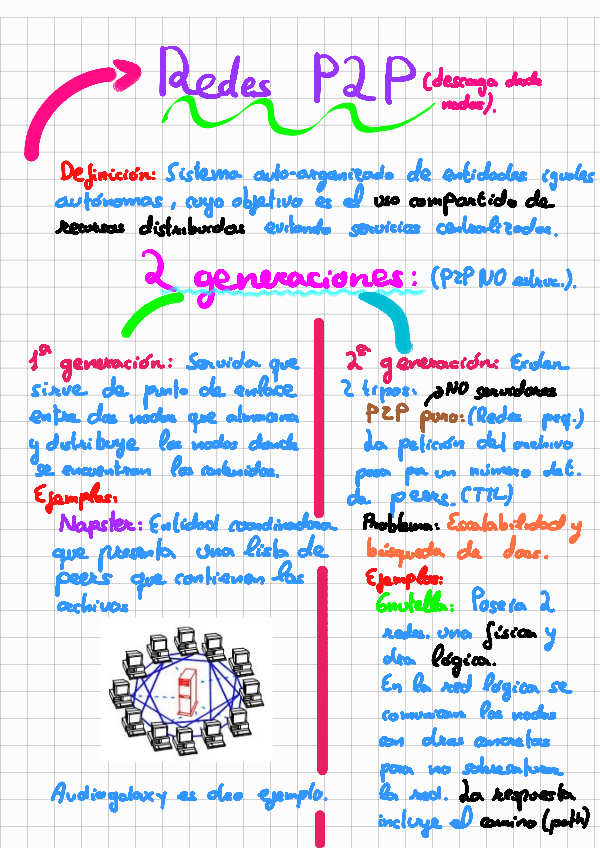 Redes P2P (descarga desde
nodos).
Definición: Sistema auto-organizado de entidades iguales
autónomas, cuyo objetivo es el uso compartido de
recursos distribuidos evitando servicios centralizados.
2 generaciones: (P2P NO estruc.).
1ª generación: Servidor que
sirve de punto de enlace
entre dos nodos que almacena
y distribuye los nodos donde
se encuentran los contenidos.
Ejemplos:
Napster: Entidad coordinadora
que presenta una lista de
peers que contienen los
archivos
Audiogalaxy es otro ejemplo.
2ª generación: Existen
2 tipos.
NO servidores
P2P puro: (Redes peq.)
La petición del archivo
pasa por un número det.
de peers. (TTL)
Problema: Escalabilidad y
búsqueda de docs.
Ejemplos:
Gnutella: Poseía 2
redes. una física y
otra lógica.
En la red lógica se
comunican los nodos
con otros concretos
para no sobresaturar
la red. La respuesta
incluye el camino (path)